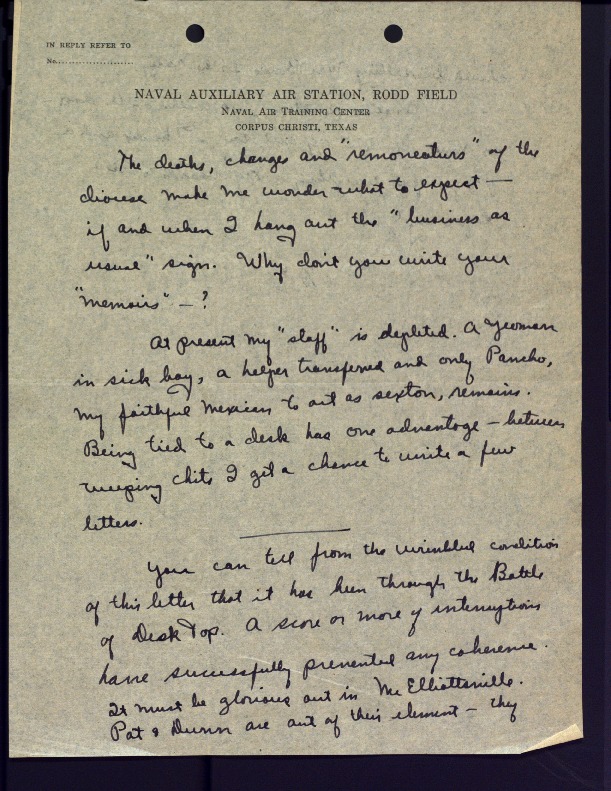 IN REPLY REFER TO
No.
NAVAL AUXILIARY AIR STATION, RODD FIELD
NAVAL AIR TRAINING CENTER
CORPUS CHRISTI, TEXAS
The deaths, changes and "remoneaturs" of the
diocese make me wonder what to expect —
if and when I hang out the "business as
usual" sign. Why don't you write your
"memoirs" — ?
At present my "staff" is depleted. A Yeoman
in sick bay, a helper transferred and only Pancho,
my faithful Mexican to act as sexton, remains.
Being tied to a desk has one advantage — between
weeping chits I get a chance to write a few
letters.
You can tell from the wrinkled condition
of this letter that it has been through the Battle
of Desk Top. A score or more of interruptions
have successfully prevented any coherence.
It must be glorious out in McElliottsville.
Pat & Dunn are out of their element — they